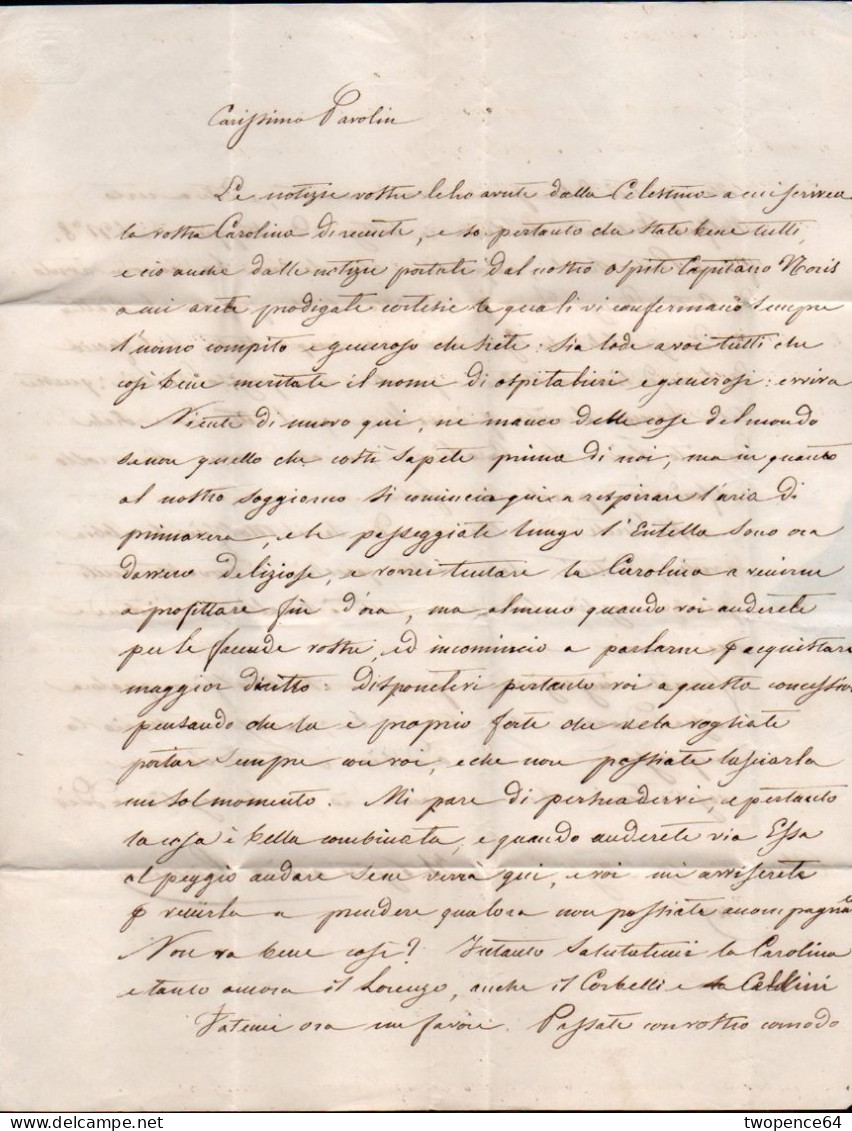 Carissimo Parolin
Le notizie vostre le ho avute dalla Celestina a cui scrivea
la vostra Carolina di recente, e so pertanto che state bene tutti,
e ciò anche dalle notizie portate dal nostro ospite Capitano Noris
a cui avete prodigate cortesie le quali vi confermano sempre
l'uomo compito e generoso che siete: sia lode a voi tutti che
così bene meritate il nome di ospitalieri e generosi: evviva
Niente di nuovo qui, ne manco delle cose del mondo
se non quello che costì sapete prima di noi, ma in quanto
al nostro soggiorno si comincia qui a respirare l'aria di
primavera, e le passeggiate lungo l'Entella sono ora
davvero deliziose, e vorrei tentare la Carolina a venirne
a profittare fin d'ora, ma almeno quando voi anderete
per le facende vostre, ed incomincio a parlarne p acquistare
maggior diritto: disponetevi pertanto voi a questa concessione
pensando che la è proprio forte che ve la vogliate
portar sempre con voi, e che non possiate lasciarla
un sol momento. Mi pare di persuadervi, e pertanto
la cosa è bella combinata, e quando anderete via Essa
al peggio andare sene verrà qui, e voi mi avviserete
p venirla a prendere qualora non possiate accompagnarla
Non va bene così? Intanto salutatemi la Carolina
e tanto ancora il Lorenzo, anche il Corbelli e la Cellini
Fatemi ora un favore. Passate con vostro comodo
twopence64